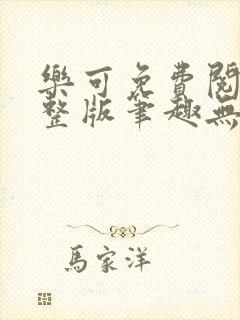 樂可免費閱
整版筆趣無
馬家洋